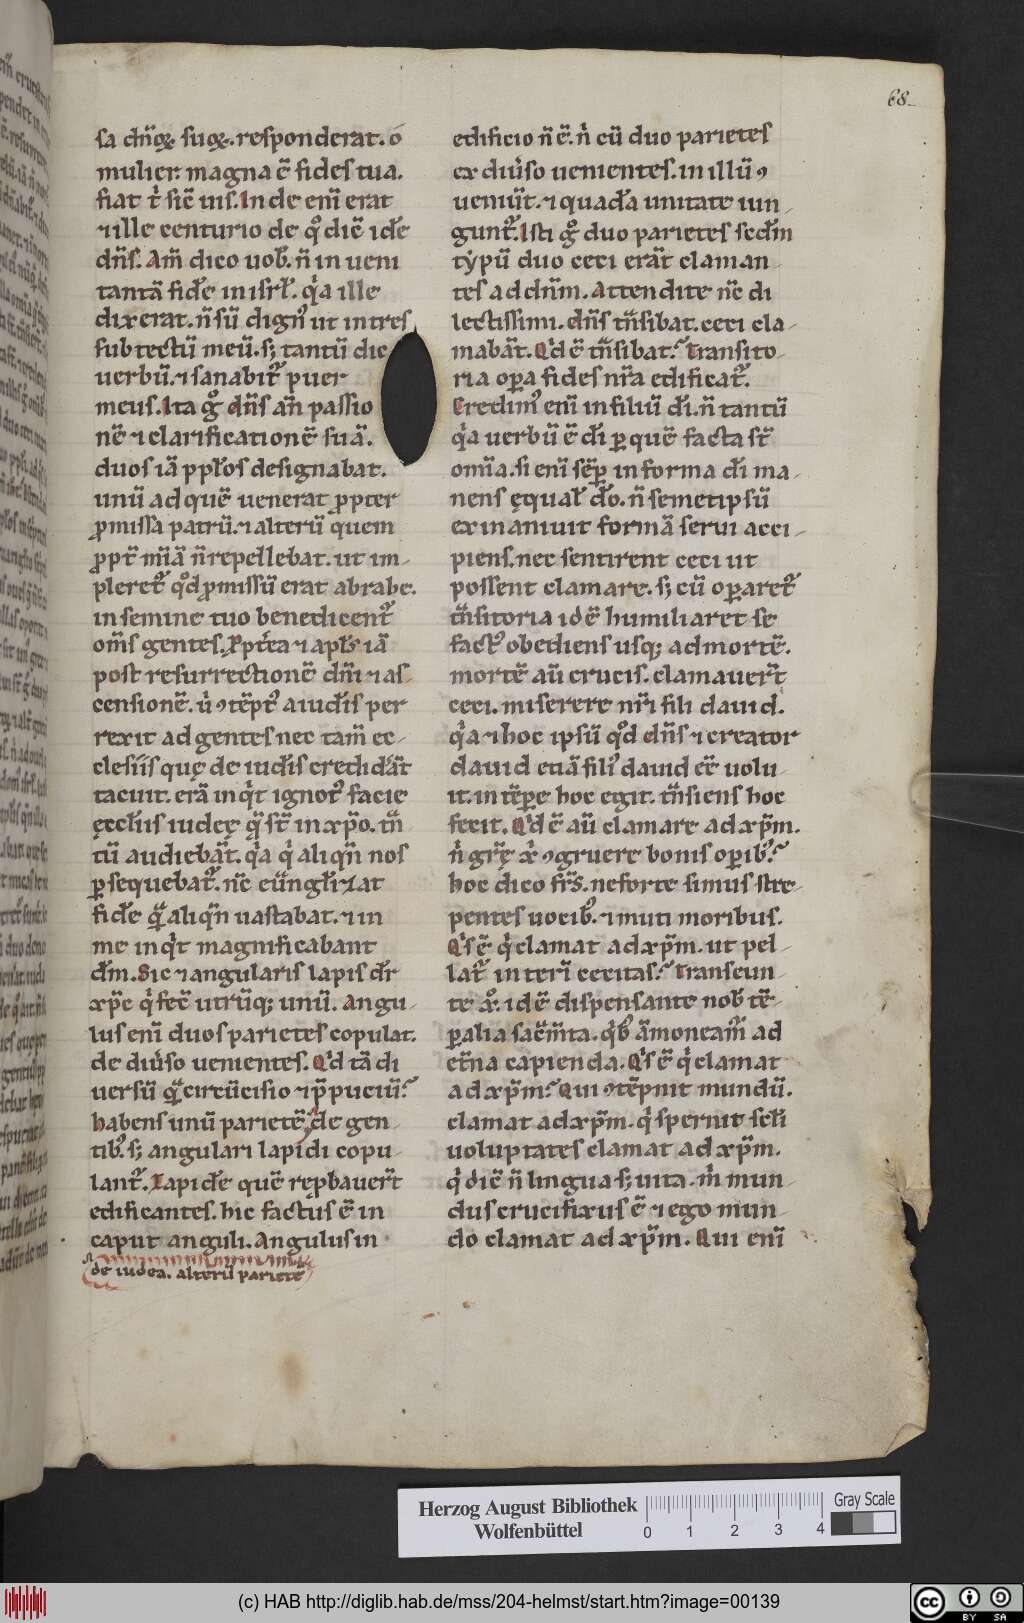 68
sa dn̄oꝝ suoꝝ. responderat. o
mulier: magna ē fides tua.
fiat t̄ sic̄ uis. Inde eni̅ erat
⁊ ille centurio de qͦ dic̄ idē
dn̄s. Am̄ dico uob̄. n̄ inueni
tantā fidē in isrl̄. qͥa ille
dixerat. n̄ sū dignꝰ ut intres
sub tectū meū. sꝫ tantū dic
uerbū. ⁊ sanabit᷑ puer
meus. Ita gͦ dn̄s an̄ passio
nē ⁊ clarificationē suā.
duos iā pp̄los designabat.
unū ad quē uenerat ꝓpter
ꝓmissa patrū. ⁊ alterū quem
ꝓpt̄ mi̅a̅ n̄ repellebat. ut im-
pleret᷑ qͦd ꝓmissū erat abrahe.
in semine tuo benedicent᷑
om̄s gentes.
post resurrectionē dn̄i ⁊ as
censionē. ꝯtēptꝰ a iudeis per
rexit ad gentes nec tam̄ ec-
clesiis quę de iudeis crediderāt
tacuit. erā inqͥt ignotꝰ facie
ęccliis iudeę q̄ st̄ in xp̄o. tn̄
tū audiebāt. qͥa qͥ aliqn̄ nos
ꝑsequebat᷑. nc̄ euūgl̄izat
fidē quā aliqn̄ uastabat. ⁊ in
me inqͥt magnificabant
dm̄. Sic ⁊ angularis lapis dr̄
xp̄c qͥ fec̄ utrūqꝫ unū. Angu-
lus eni̅ duos parietes copulat.
de diuͥso uenientes. Qͥd tā di
uersū quā circūcisio ⁊ p̄puciū?
habens unū parietē de gen-
tibꝰ. sꝫ angulari lapidi copu-
lant᷑. Lapidē quē reꝓbauer̄t
edificantes. hic factus ē in
caput anguli. Angulus in
de iudea. alterū parietē
edificio n̄ ē. nͥ cū duo parietes
ex diuͥso uenientes. in illū ꝯ
ueniūt. ⁊ quadā unitate iun-
gunt᷑. Isti gͦ duo parietes scdm̄
typū duo ceci erāt claman-
tes ad dn̄m. Attendite nc̄ di
lectissimi. dn̄s tn̄sibat. ceci cla-
mabāt. Qͥd ē tn̄sibat? Transito-
ria oꝑa fides nr̄a edificat᷑.
Credimꝰ eni̅ in filiū dī. n̄ tantū
qͥa uerbū ē dī ꝑ quē facta st̄
omi̅a. si eni̅ sēꝑ in forma dī ma-
nens ęqual̄ dō. n̄ semetipsū
exinaniuit formā serui acci-
piens. nec sentirent ceci ut
possent clamare. sꝫ cū oꝑaret᷑
tn̄sitoria idē humiliaret se
factꝰ obediens usqꝫ ad mortē.
mortē aū crucis. clamauer̄t
ceci. miserere nr̄i fili dauid.
qͥa ⁊ hoc ipsū qͦd dn̄s ⁊ creator
dauid etiā filiꝰ dauid ēē uolu-
it. in tēꝑe hoc egit. tn̄siens hoc
fecit. Qͥd ē aū clamare ad xp̄m.
nͥ gr̄ę xͥ ꝯgruere bonis oꝑibꝰ?
hoc dico fr̄s. ne forte simus stre-
pentes uocibꝰ. ⁊ muti moribus.
Qͥs ē qͥ clamat ad xp̄m. ut pel-
lat᷑ interi̅ cecitas? Transeun-
te xͦ. idē dispensante nob̄ tē-
ꝑalia sac̄m̄ta. qͥbꝰ āmoneam̄ ad
et̄na capienda. Qͥs ē qͥ clamat
ad xp̄m? Qui ꝯtēpnit mundū.
clamat ad xp̄m. qͥ spernit scl̄i
uoluptates clamat ad xp̄m.
qͥ dic̄ n̄ lingua sꝫ uita. mͥ mun-
dus crucifixus ē ⁊ ego mun-
do clamat ad xp̄m. Qui eni̅
Herzog August Bibliothek
Wolfenbüttel
0 1 2 3 4
Gray Scale
(c) HAB http://diglib.hab.de/mss/204-helmst/start.htm?image=00139
cc BY SA